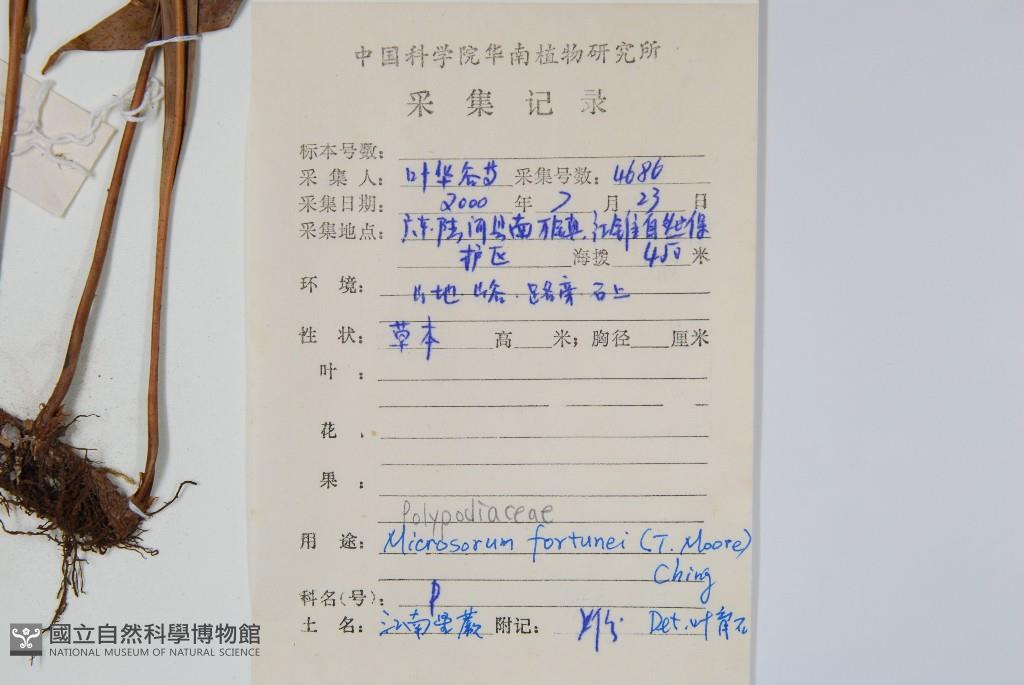 中国科学院华南植物研究所
采集记录
标本号数：
采集人：叶华谷等 采集号数：4686
采集日期：2000 年 7 月 23 日
采集地点：广东陆河县南万镇 自然保
护区 海拨 450 米
环境：山地 山谷．路旁 石上
性状：草本 高 米；胸径 厘米
叶：
花．
果：
Polypodiaceae
用途：Microsorum fortunei (T. Moore)
Ching
科名(号)：P
土名：江南星蕨 附记： Det. 叶育石
國立自然科學博物館
NATIONAL MUSEUM OF NATURAL SCIENCE